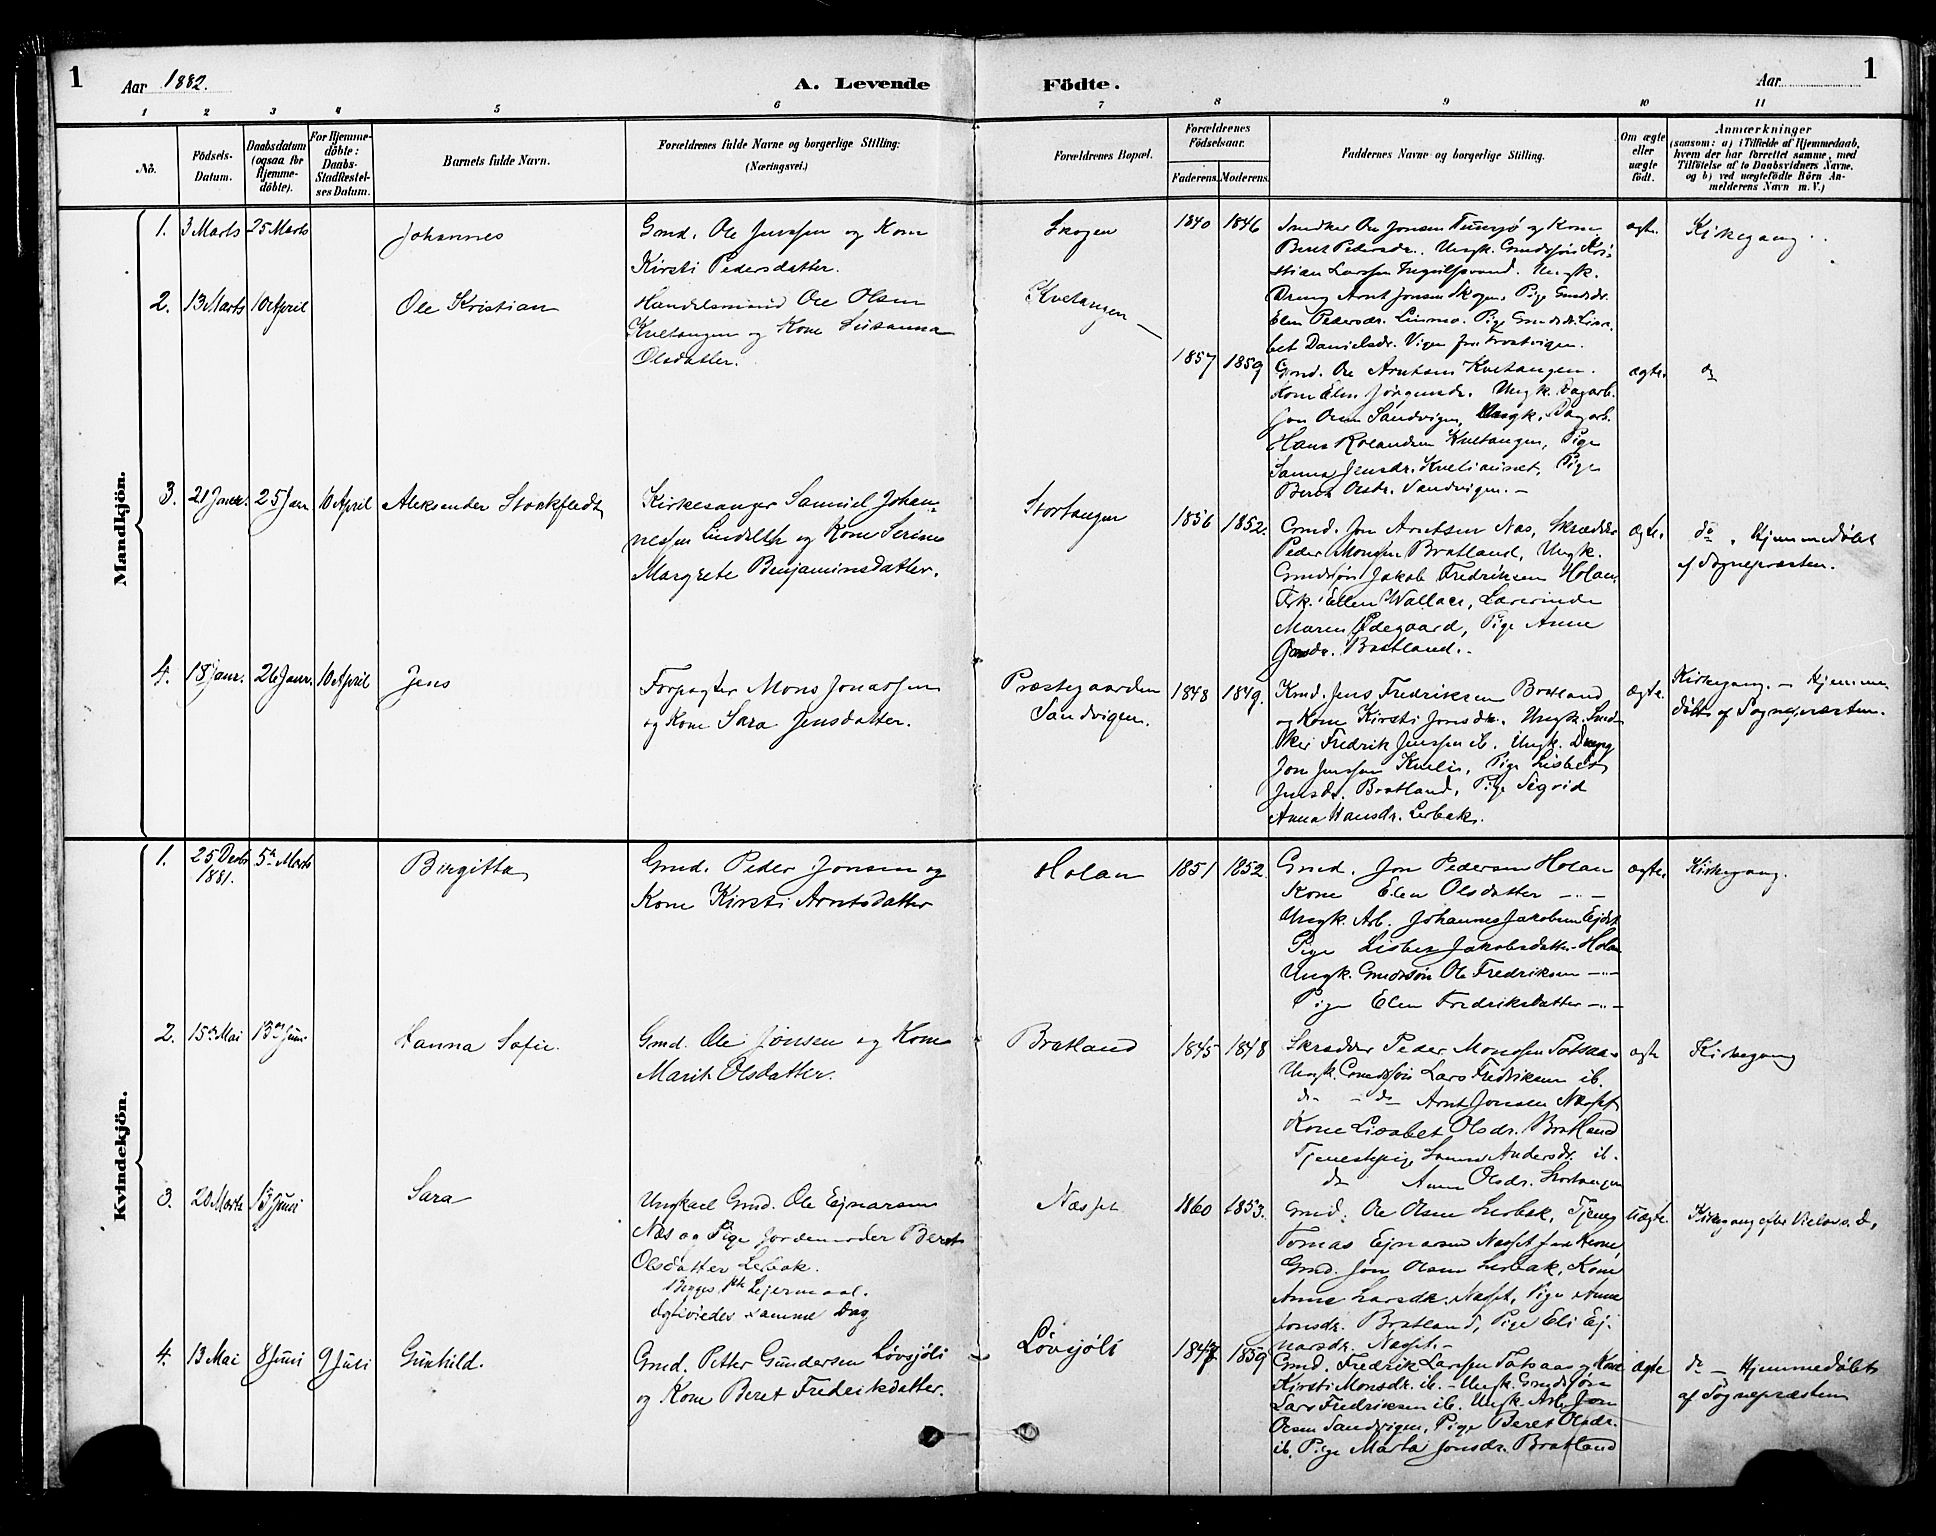 1
Aar 1882.
A. Levende
Födte.
Aar
1
1 2 3 4 5 6 7 8 9 10 11
No.
Födsels-
Datum.
Daabsdatum
(ogsaa for
Hjemme-
döbte).
For Hjemme-
döbte:
Daabs-
Stadfæstel-
ses Datum.
Barnets fulde Navn.
Forældrenes fulde Navne og borgerlige Stilling:
(Næringsvei.)
Forældrenes Bopæl.
Forældrenes
Födselsaar.
Faderens. Moderens.
Faddernes Navne og borgerlige Stilling.
Om ægte
eller
uægte
födt.
Anmærkninger
(saasom: a) i Tilfælde af Hjemmedaab,
hvem der har forrettet samme, med
Tilföielse af to Daabsvidners Navne.
og b) ved uægtefödte Börn An-
melderens Navn m. V.)
Mandkjön.
1. 3 Marts 25 Marts
Johannes
Gmd. Ole Jenssen og Kone
Kirsti Pedersdatter.
Skogen
1840 1846
Snedker Ole Jonsen Tunsjø og Kone
Beret Pedersdr. Ungk. Gmdssøn Kri-
stian Larssen Ungk.
Dreng Arnt Jonsen Skogen, Pige Gmdsdr.
Elen Pedersdr. Linmo. Pige Gmdsdr. Lisa-
bet Danielsdr. Vigen fra Frostvigen.
ægte.
Kirkegang.
2. 13 Marts 10 April
Ole Kristian
Handelsmand Ole Olsen
Kveltangen og Kone Susanna
Olsdatter.
Kvetangen
1857 1859
Gmd. Ole Arntsen Kvetangen.
Kone Elen Jörgensdr. Ungk. Dagarb.
Jon Olsen Sandvigen, Ungk. Dagarb.
Hans Rolandsen Kveltangen, Pige
Sanna Jensdr. Kveliaunet, Pige
Beret Olsdr. Sandvigen. —
ægte.
do
3. 21 Januar. 25 Jan 10 April
Aleksander Stockfledt
Kirkesanger Samuel Johan-
nessen Lindseth og Kone Serine
Margrete Benjaminsdatter.
Stortangen
1856 1852.
Gmd. Jon Arntsen Næs, Skrædder
Peder Monsen Bratland, Ungk.
Gmdssøn Jakob Fredriksen Holan,
Frk. Ellen Wallace, Lærerinde
Maren Ødegaard, Pige Anne
Jonsdr. Bratland.
ægte.
do, Hjemmedøbt
af Sognepræsten.
4. 18 Janr. 26 Janr. 10 April
Jens
Forpagter Mons Jonassen
og Kone Sara Jensdatter.
Præstegaarden
Sandvigen.
1848 1849.
Gmd. Jens Fredriksen Bratland
og Kone Kirsti Jonsdr. Ungk. Sned-
ker Fredrik Jenssen ib. Ungk. Dreng
Jon Jenssen Kveli, Pige Lisbet
Jensdr. Bratland, Pige Sigrid
Anna Hansdr. Lerbak.
ægte.
Kirkegang. — Hjemme-
døbt af Sognepræsten.
Kvindekjön.
1. 25 Decbr 1881. 5te Marts
Birgitta
Gmd. Peder Jonsen og
Kone Kirsti Arntsdatter
Holan
1851 1852
Gmd. Jon Pedersen Holan
Kone Elen Olsdatter — " —
Ungk. Arb. Johannes Jakobsen Ejdet
Pige Lisbet Jakobsdatter Holan
Ungk. Gmdssøn Ole Fredriksen — " —
Pige Elen Fredriksdatter — " —
ægte.
Kirkegang.
2. 15de Mai 13de Juni
Hanna Sofie.
Gmd. Ole Jonsen og Kone
Marit Olsdatter.
Bratland
1845 1848
Skrædder Peder Monssen Totsaas
Ungk. Gmdssøn Lars Fredriksen ib.
do — do Arnt Jonsen Næsset
Kone Lisabet Olsdr. Bratland
Tjenestepige Sanna Andersdr. ib.
do Anne Olsdr. Stortangen
ægte
Kirkegang
3. 20 Marts 13 Juni
Sara
Ungkarl Gmd. Ole Ejnarsen
Næs og Pige Jordemoder Beret
Olsdatter Lerbak.
Begges 1ste Lejermaal.
Ægtviedes samme Dag
Næsset
1860 1853.
Gmd. Ole Olsen Lerbak, Tjener
Tomas Ejnarsen Næsset
Gmd. Jon Olsen Lerbak, Kone
Anne Larsdr. Næsset, Pige Anne
Jonsdr. Bratland, Pige Eli Ej-
narsdr. Næsset. —
Uægte.
Kirkegang efter Vielsen s. D.
4. 13 Mai 8 Juni 9 Juli
Gunhild.
Gmd. Petter Gundersen Løvsjöli
og Kone Beret Fredriksdatter.
Løvsjöli
1847 1859
Gmd. Fredrik Larssen Totsaas og Kone
Kirsti Monsdr. ib. — Ungk. Gmdssøn
Lars Fredriksen ib. Ungk. Arb. Jon
Olsen Sandvigen, Pige Beret Olsdr.
ib. Pige Marta Jonsdr. Bratland
ægte
do — Hjemmedøbt
af Sognepræsten